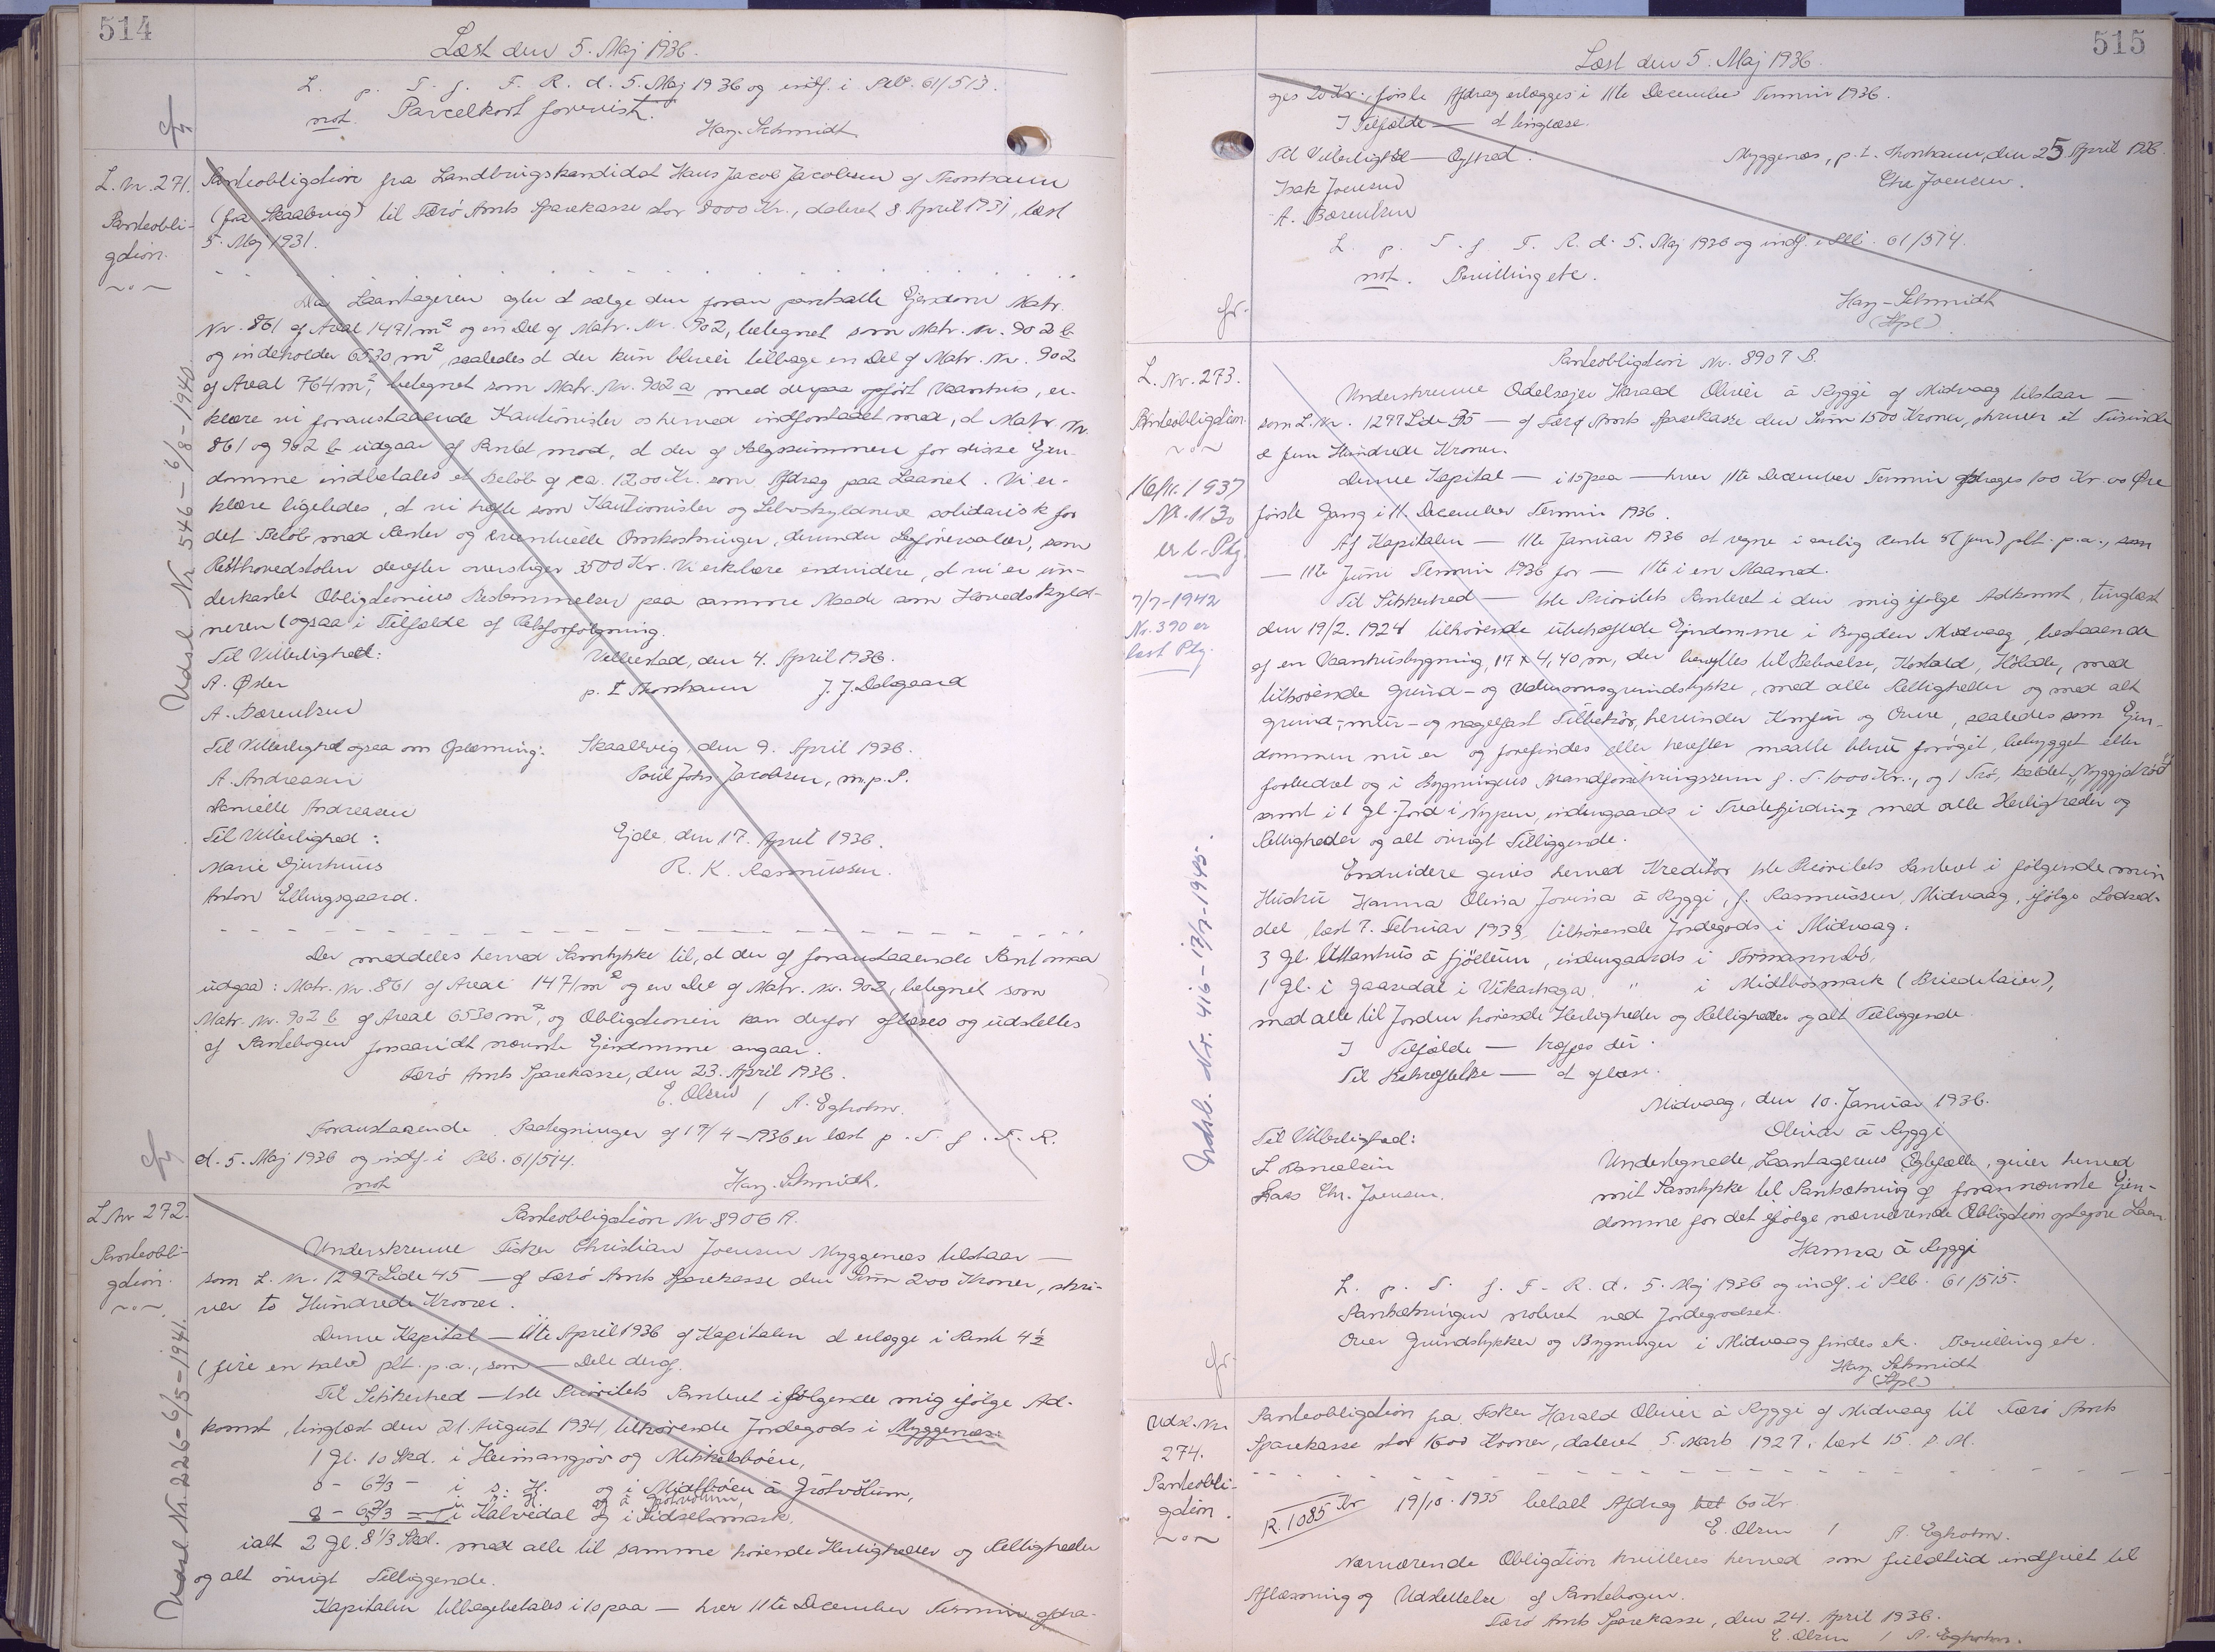 514
Læst den 5. Maj 1936.
L. p. T. f. F. R. d. 5. Maj 1936 og indf. i Ptb. 61/513.
not. Parcelkort forevist.
Hay-Schmidt
L. Nr. 271.
Panteobli-
gation.
Udsl. Nr. 546 - 6/8 - 1940.
Panteobligation fra Landbrugskandidat Hans Jacob Jacobsen af Thorshavn
(fra Skaalevig) til Færø Amts Sparekasse stor 8000 Kr., dateret 8. April 1931, læst
5. Maj 1931.
Da Laantageren agter at sælge den foran pantsatte Ejendom Matr.
Nr. 861 af Areal 1471 m² og en Del af Matr. Nr. 902, betegnet som Matr. Nr. 902 b
og indeholder 6530 m², saaledes at der kun bliver tilbage en Del af Matr. Nr. 902
af Areal 764 m², betegnet som Matr. Nr. 902 a med derpaa opført Vaanhus, er-
klære vi foranstaaende Kautionister os herved indforstaaet med, at Matr. Nr.
861 og 902 b udgaar af Pantet mod, at der af Salgssummen for disse Ejen-
domme indbetales et Beløb af ca. 1200 Kr. som Afdrag paa Laanet. Vi er-
klære ligeledes, at vi hæfte som Kautionister og Selvskyldnere solidarisk for
det Beløb med Renter og eventuelle Omkostninger, derunder Sagførersalær, som
Resthovedstolen derefter overstiger 3500 Kr. Vi erklære endvidere, at vi er un-
derkastet Obligationens Bestemmelser paa samme Maade som Hovedskyld-
neren (ogsaa i Tilfælde af Retsforfølgning.
Til Vitterlighed:
Vestmanna, den 4. April 1936.
A. Øster
p. t. Thorshavn J. J. Dalsgaard
A. Bærentsen
Til Vitterlighed ogsaa om Oplæsning:
Skaalevig, den 9. April 1936.
A. Andreasen
Poul Johs. Jacobsen, m. p. P.
Danielle Andreasen
Til Vitterlighed:
Ejde, den 17. April 1936.
Marie Djurhuus
R. K. Rasmussen.
Anton Ellingsgaard.
Der meddeles herved Samtykke til, at der af foranstaaende Pant maa
udgaa: Matr. Nr. 861 af Areal 1471 m² og en Del af Matr. Nr. 902, betegnet som
Matr. Nr. 902 b af Areal 6530 m², og Obligationen kan derfor aflæses og udslettes
af Pantebogen forsaavidt nævnte Ejendomme angaar.
Færø Amts Sparekasse, den 23. April 1936.
E. Olsen / A. Egholm.
Foranstaaende Paategninger af 17/4-1936 er læst p. T. f. F. R.
d. 5. Maj 1936 og indf. i Ptb. 61/514.
not
Hay-Schmidt.
L. Nr. 272.
Panteobli-
gation.
Udsl. Nr. 226 - 6/5 - 1941.
Panteobligation Nr. 8906 A.
Underskrevne Fisker Christian Joensen Myggenæs tilstaar —
som L. Nr. 1297 Side 45 — af Færø Amts Sparekasse den Sum 200 Kroner, skri-
ver to Hundrede Kroner.
Denne Kapital — 11te April 1936 af Kapitalen at erlægge i Rente 4½
(fire en halv) pCt. p. a., som — Dele deraf.
Til Sikkerhed — 1ste Prioritets Panteret i følgende mig ifølge Ad-
komst, tinglæst den 21. August 1934, tilhørende Jordegods i Myggenæs:
1 Gl. 10 Skd. i Heimangjov og Mikkelsbøen,
0 - 6 2/3 - i s. H. og i Midtbøen á Grotvølum,
0 - 6 2/3 = i Kalvedal og i Sidselsmark.
ialt 2 Gl. 8 1/3 Skd. med alle til samme hørende Herligheder og Rettigheder
og alt øvrigt Tilliggende.
Kapitalen tilbagebetales i 10 paa — hver 11te December Termin afdra-
515
Læst den 5. Maj 1936.
ges 20 Kr., første Afdrag erlægges i 11te December Termin 1936.
I Tilfælde — at tinglæse.
Til Vitterlighed — Oplæst.
Myggenæs, p. t. Thorshavn, den 25 April 1936.
Isak Joensen
Chr. Joensen.
A. Bærentsen
L. p. T. f. F. R. d. 5. Maj 1936 og indf. i Ptb. 61/514.
not. Bevilling etc.
Hay-Schmidt
(Stpl.)
L. Nr. 273.
Panteobligation.
16/11. 1937
Nr. 1130
er l. Ptg.
7/7-1942
Nr. 390 er
læst Ptg.
Udsl. Nr. 416 - 17/7 - 1945.
Panteobligation Nr. 8907 B.
Underskrevne Odelsejer Harald Oliver á Ryggi af Midvaag tilstaar —
som L. Nr. 1297 Side 35 — af Færø Amts Sparekasse den Sum 1500 Kroner, skriver et Tusinde
& fem Hundrede Kroner.
Denne Kapital — i 15 paa — hver 11te December Termin afdrages 100 Kr. 00 Øre
første Gang i 11. December Termin 1936.
Af Kapitalen — 11te Januar 1936 at regne i aarlig Rente 5 (fem) pCt. p. a., som
— 11te Juni Termin 1936 for — 11te i en Maaned.
Til Sikkerhed — 1ste Prioritets Panteret i den mig ifølge Adkomst, tinglæst
den 19/2. 1924 tilhørende ubehæftede Ejendomme i Bygden Midvaag, bestaaende
af en Vaanhusbygning, 17 x 4,40 m, der benyttes til Beboelse, Kostald, Hølade, med
tilhørende Grund- og Udenomsgrundstykke, med alle Rettigheder og med alt
grund-, mur- og nagelfast Tilbehør, herunder Komfur og Ovne, saaledes som Ejen-
dommen nu er og forefindes eller herefter maatte blive forøget, bebygget eller
forbedret og i Bygningens Brandforsikringssum f. T. 1000 Kr., og 1 Trø, kaldet „Nyggjatrøð"
samt i 1 Gl. Jord i Nypen, indengaards i Tvalefjerding med alle Herligheder og
Rettigheder og alt øvrigt Tilliggende.
Endvidere gives herved Kreditor 1ste Prioritets Panteret i følgende min
Hustru Hanna Olevia Jovina á Ryggi, f. Rasmussen, Midvaag, ifølge Lodsed-
del, læst 7. Februar 1933, tilhørende Jordegods i Midvaag:
3 Gl. Uttanhus á fjøllum, indengaards i Tormannsbø,
1 Gl. i Gaaredal i Vikarhaga. " i Midtbømark (Briedulaier),
med alle til Jorden hørende Herligheder og Rettigheder og alt Tilliggende.
I Tilfælde — træffes der.
Til Bekræftelse — at aflæse.
Midvaag, den 10. Januar 1936.
Til Vitterlighed:
Oliver á Ryggi
L. Danielsen
Lars Chr. Joensen.
Undertegnede, Laantagerens Ægtefælle, giver herved
mit Samtykke til Pantsætning af forannævnte Ejen-
domme for det ifølge nærværende Obligation optagne Laan.
Hanna á Ryggi
L. p. T. f. F. R. d. 5. Maj 1936 og indf. i Ptb. 61/515.
Pantsætningen noteret ved Jordegodset.
Over Grundstykker og Bygninger i Midvaag findes ek. Bevilling etc.
Hay-Schmidt
(Stpl.)
Udsl. Nr.
274.
Panteobli-
gation.
Panteobligation fra Fisker Harald Oliver á Ryggi af Midvaag til Færø Amts
Sparekasse stor 1600 Kroner, dateret 5. Marts 1927, læst 15. s. M.
R. 1085 Kr 19/10. 1935 betalt Afdrag 60 Kr.
E. Olsen / A. Egholm.
Nærværende Obligation kvitteres herved som fuldtud indfriet til
Aflæsning og Udslettelse af Pantebogen.
Færø Amts Sparekasse, den 24. April 1936.
E. Olsen / A. Egholm.